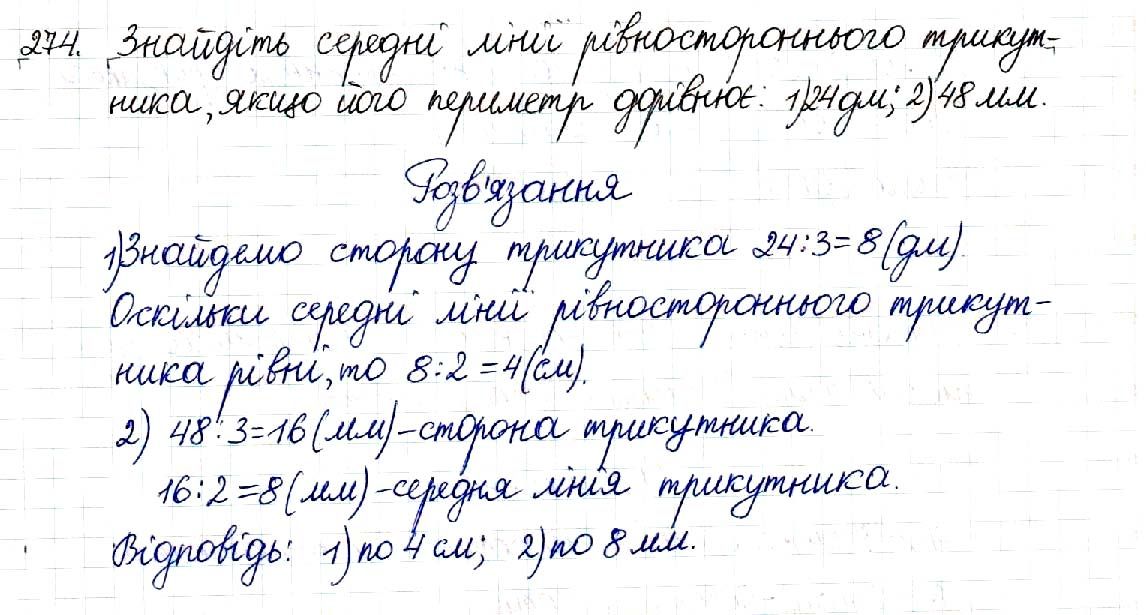 274. Знайдіть середні лінії рівностороннього трикут-
ника, якщо його периметр дорівнює: 1) 24 дм; 2) 48 мм.
Розв'язання
1) Знайдемо сторону трикутника 24:3=8 (дм).
Оскільки середні лінії рівностороннього трикут-
ника рівні, то 8:2=4 (см).
2) 48:3=16 (мм) - сторона трикутника.
16:2=8 (мм) - середня лінія трикутника.
Відповідь: 1) по 4 см; 2) по 8 мм.